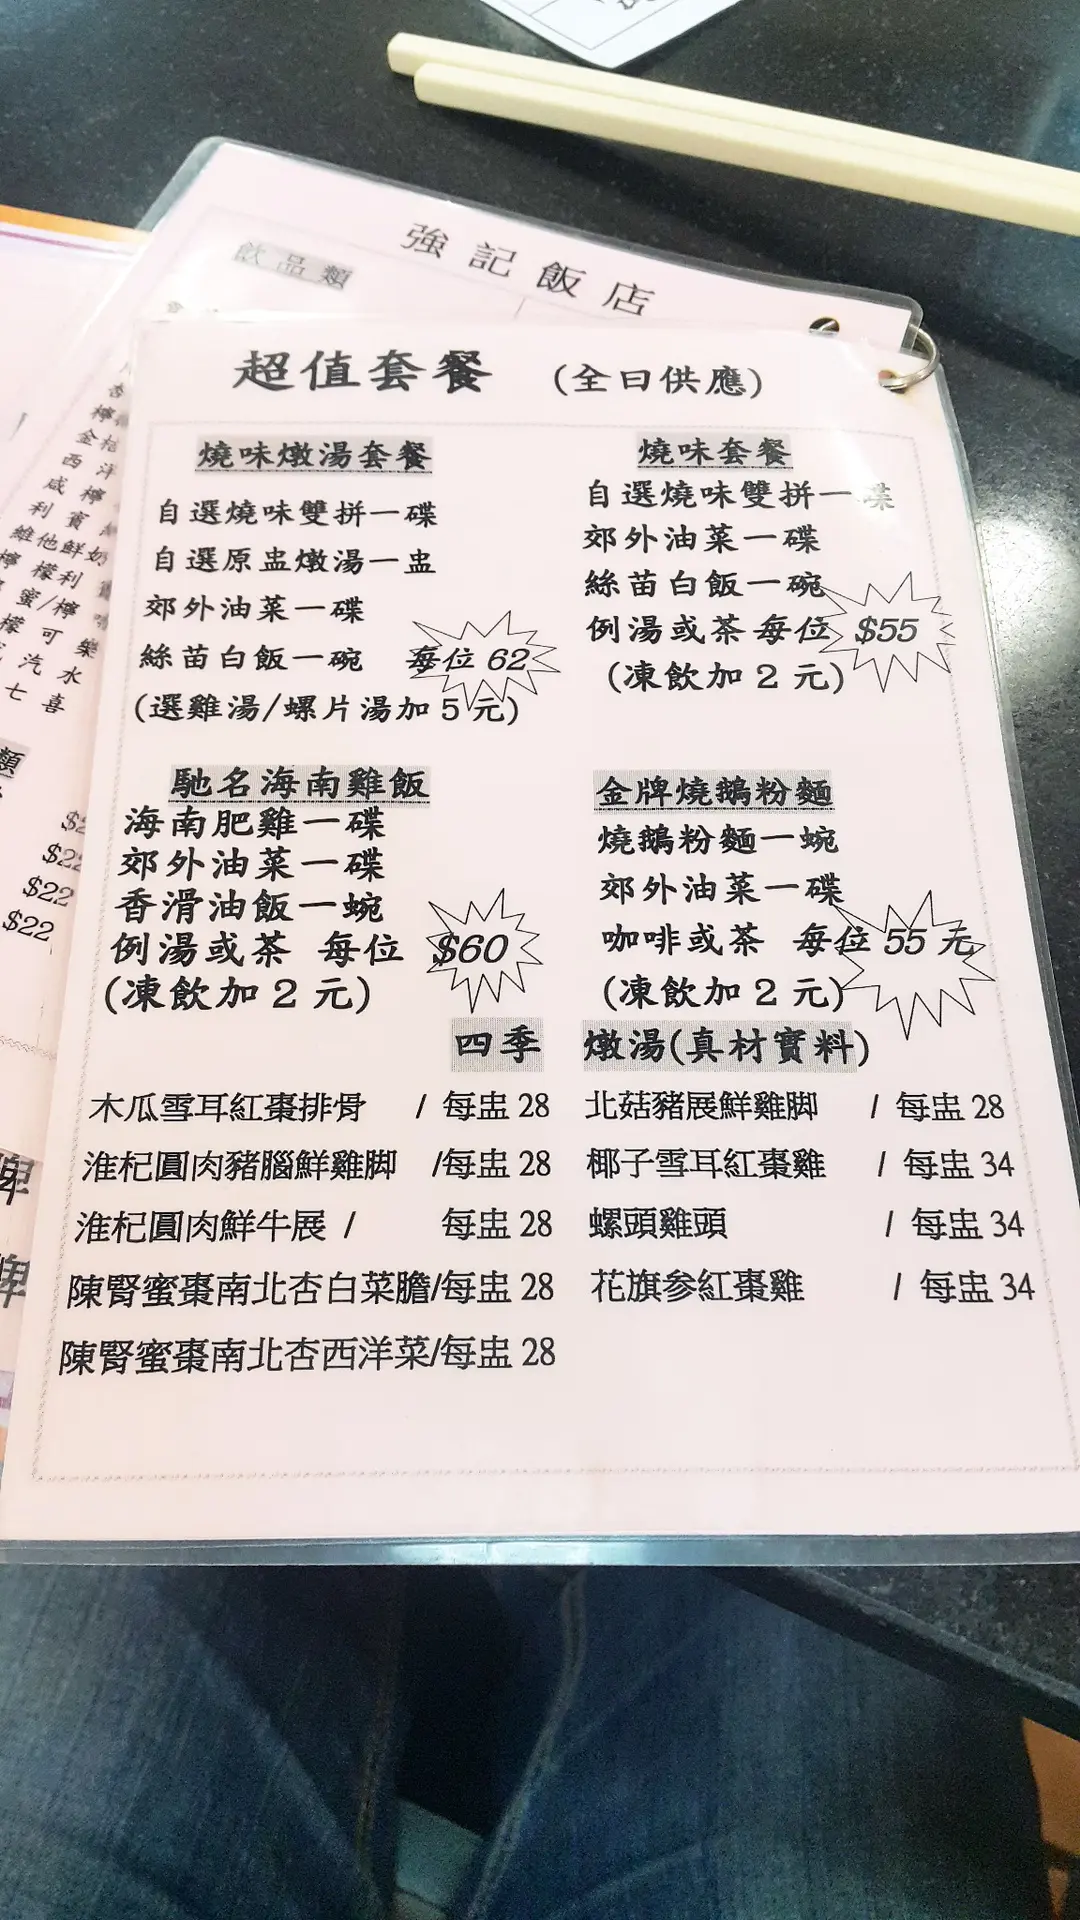 強記飯店
飲品類
超值套餐 (全日供應)
燒味燉湯套餐
自選燒味雙拼一碟
自選原盅燉湯一盅
郊外油菜一碟
絲苗白飯一碗 每位 62
(選雞湯/螺片湯加 5 元)
燒味套餐
自選燒味雙拼一碟
郊外油菜一碟
絲苗白飯一碗
例湯或茶每位 $55
(凍飲加 2 元)
馳名海南雞飯
海南肥雞一碟
郊外油菜一碟
香滑油飯一蜿
例湯或茶 每位 $60
(凍飲加 2 元)
金牌燒鵝粉麵
燒鵝粉麵一蜿
郊外油菜一碟
咖啡或茶 每位 55 元
(凍飲加 2 元)
四季 燉湯(真材實料)
木瓜雪耳紅棗排骨 / 每盅 28
淮杞圓肉豬腦鮮雞脚 /每盅 28
淮杞圓肉鮮牛展 / 每盅 28
陳腎蜜棗南北杏白菜膽/每盅 28
陳腎蜜棗南北杏西洋菜/每盅 28
北菇豬展鮮雞脚 / 每盅 28
椰子雪耳紅棗雞 / 每盅 34
螺頭雞頭 / 每盅 34
花旗参紅棗雞 / 每盅 34
西洋
咸檸
利賓
維他鮮奶
檬利
蜜/檸
檬可樂
汽水
七喜
類
$22
$22
$22
牌
牌